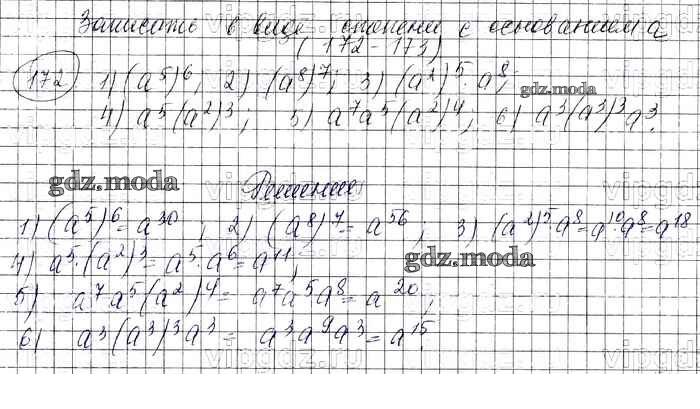 Записать в виде степени с основанием a
(172-173)
172 1) (a⁵)⁶; 2) (a⁸)⁷; 3) (a²)⁵·a⁸;
gdz.moda
4) a⁵(a²)³; 5) a⁷a⁵(a²)⁴; 6) a³(a³)³a³.
gdz.moda
Решение
1) (a⁵)⁶=a³⁰; 2) (a⁸)⁷=a⁵⁶; 3) (a²)⁵·a⁸=a¹⁰·a⁸=a¹⁸
4) a⁵·(a²)³=a⁵·a⁶=a¹¹;
gdz.moda
5) a⁷a⁵(a²)⁴= a⁷a⁵a⁸=a²⁰;
6) a³(a³)³a³= a³a⁹a³=a¹⁵.
vipgdz.ru